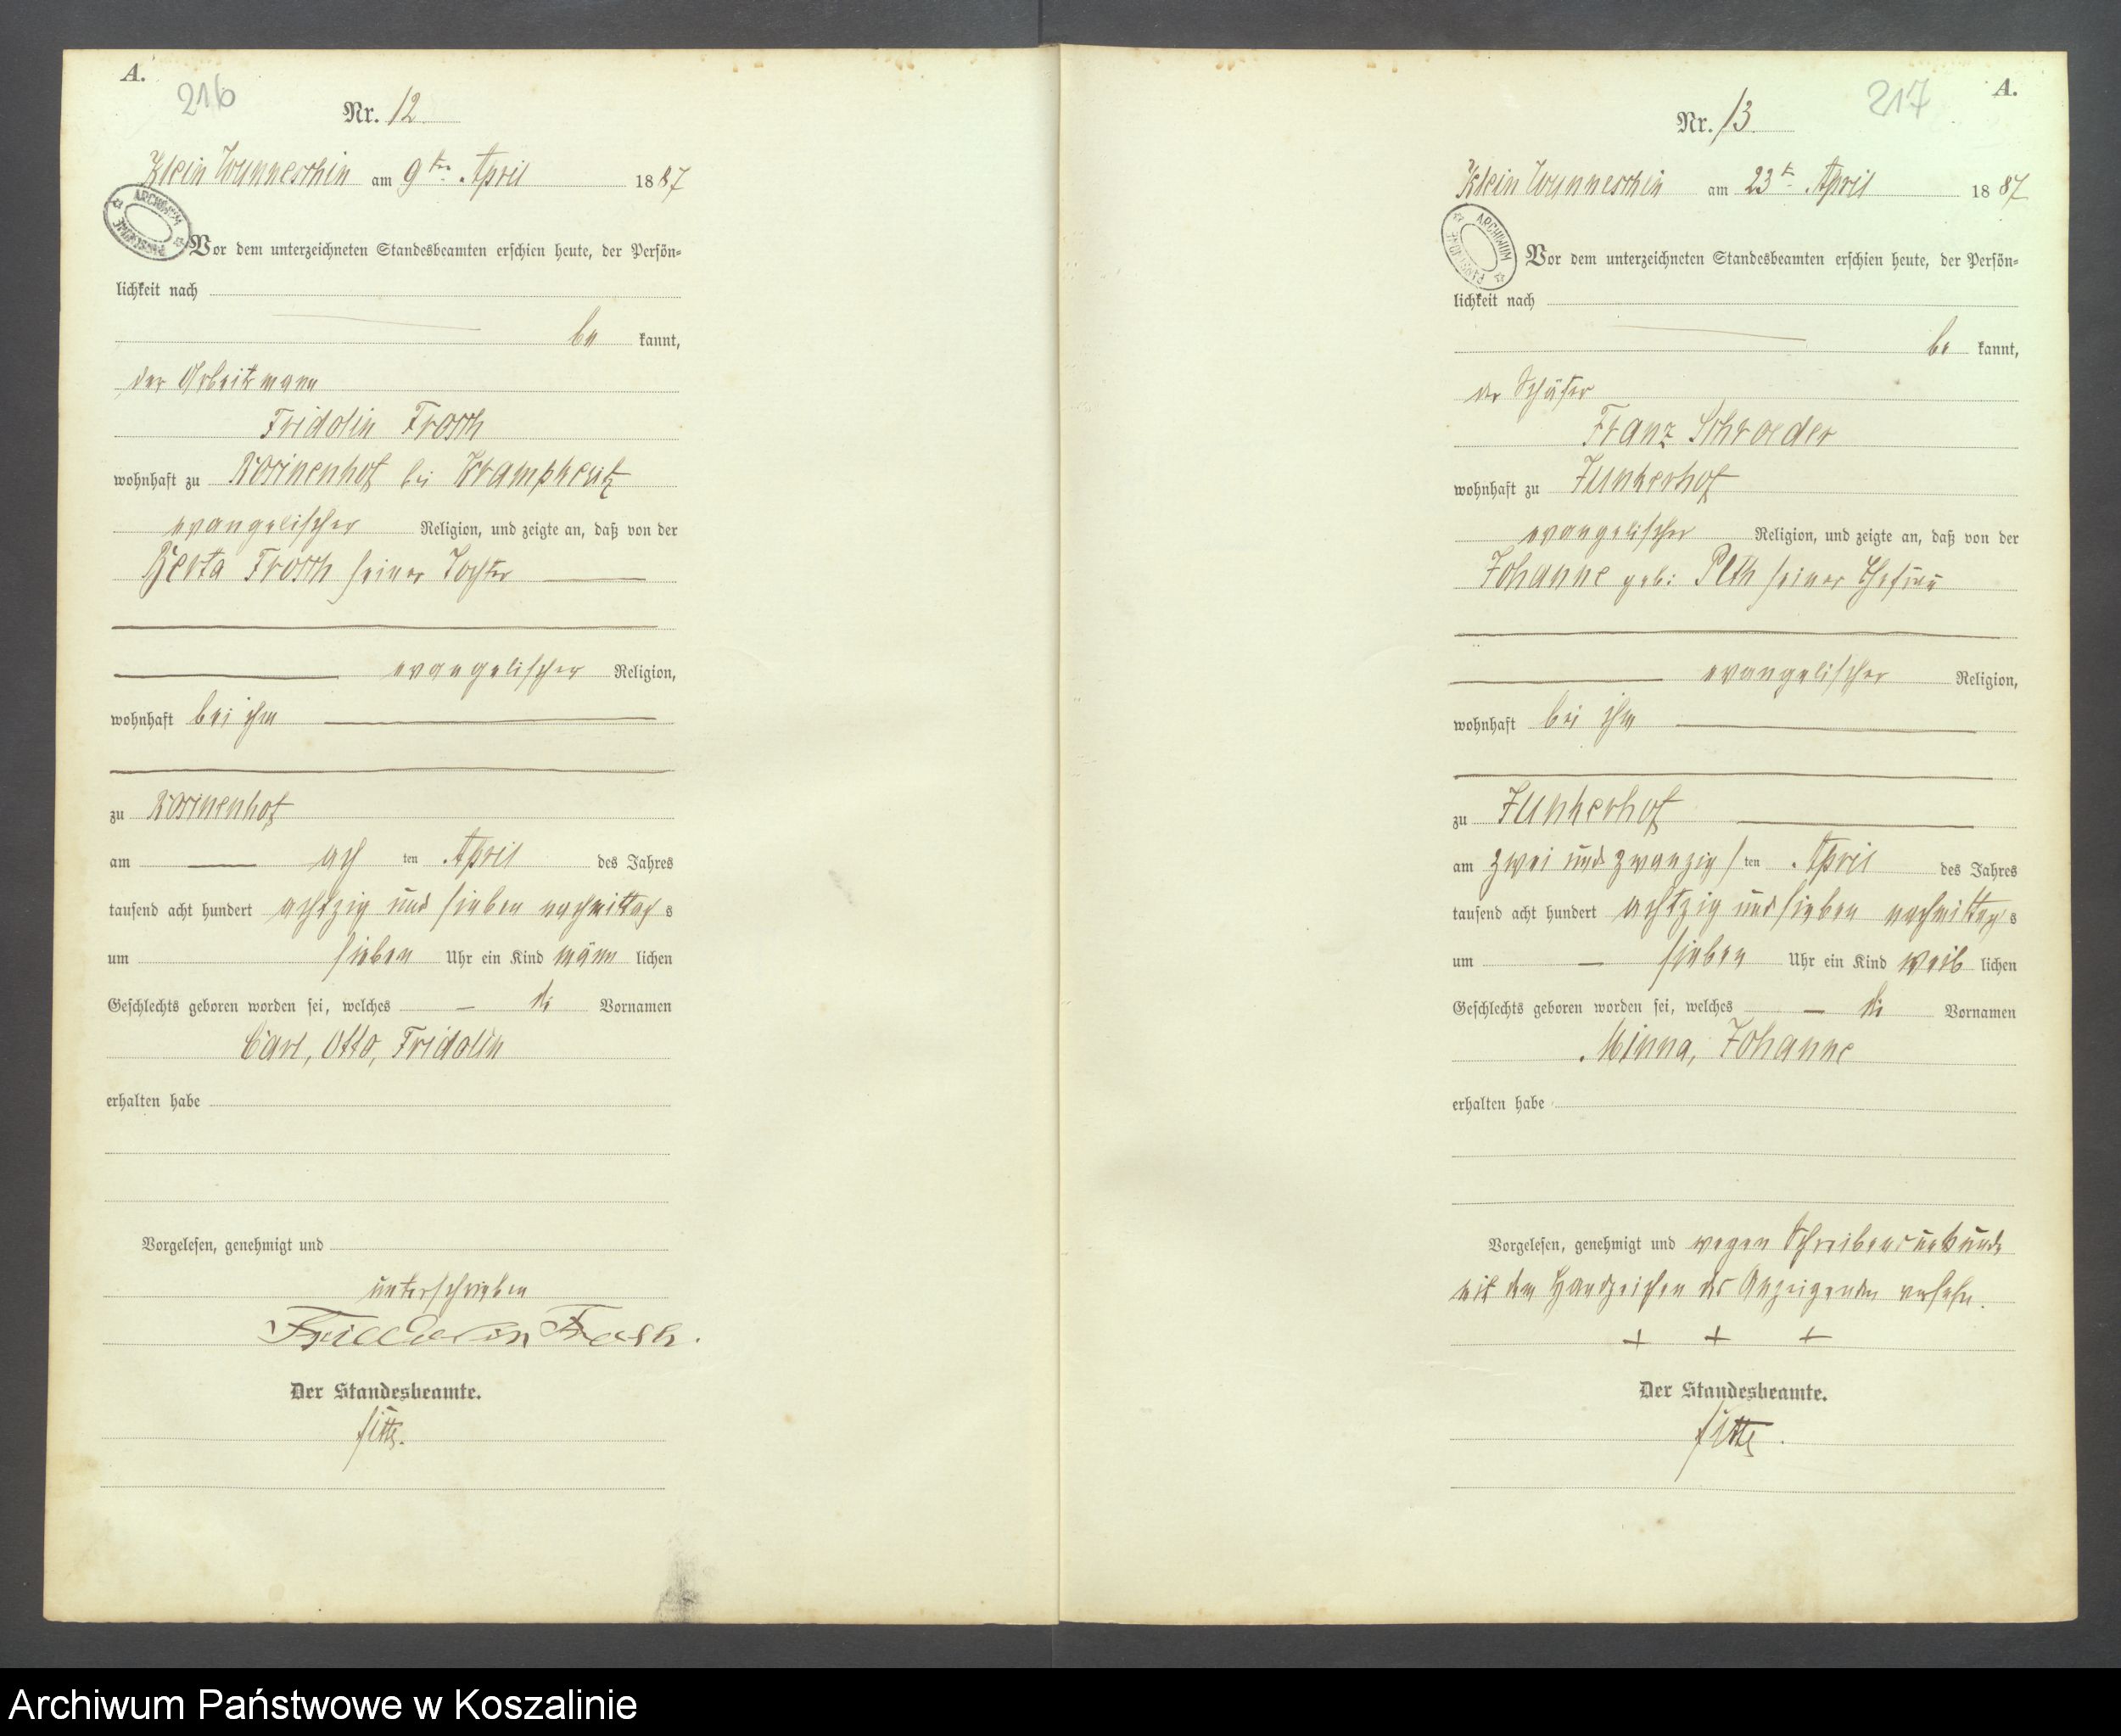 A.
216
Nr. 12
Klein Wunneschin am 9ten April 1887
ARCHIWUM PAŃSTWOWE
Vor dem unterzeichneten Standesbeamten erschien heute, der Persön-
lichkeit nach
be kannt,
der Arbeitsmann
Fridolin Frosch
wohnhaft zu Rosinenhof bei Krampkewitz
evangelischer Religion, und zeigte an, daß von der
Berta Frosch seiner Tochter
evangelischer Religion,
wohnhaft bei ihm
zu Rosinenhof
am ach ten April des Jahres
tausend acht hundert achtzig und sieben nachmittag s
um sieben Uhr ein Kind männ lichen
Geschlechts geboren worden sei, welches die Vornamen
Carl, Otto, Fridolin
erhalten habe
Vorgelesen, genehmigt und
unterschrieben
Friedolin Frosh.
Der Standesbeamte.
A.
217
Nr. 13
Klein Wunneschin am 23t April 1887
ARCHIWUM PAŃSTWOWE
Vor dem unterzeichneten Standesbeamten erschien heute, der Persön-
lichkeit nach
be kannt,
der Schäfer
Franz Schroeder
wohnhaft zu Junkerhof
evangelischer Religion, und zeigte an, daß von der
Johanne geb: Peth seiner Ehefrau
evangelischer Religion,
wohnhaft bei ihm
zu Junkerhof
am zwei und zwanzigs ten April des Jahres
tausend acht hundert achtzig und sieben nachmittag s
um sieben Uhr ein Kind weib lichen
Geschlechts geboren worden sei, welches die Vornamen
Minna, Johanne
erhalten habe
Vorgelesen, genehmigt und wegen Schreibensunkunde
mit dem Handzeichen des Anzeigenden versehn.
+ + +
Der Standesbeamte.
Archiwum Państwowe w Koszalinie